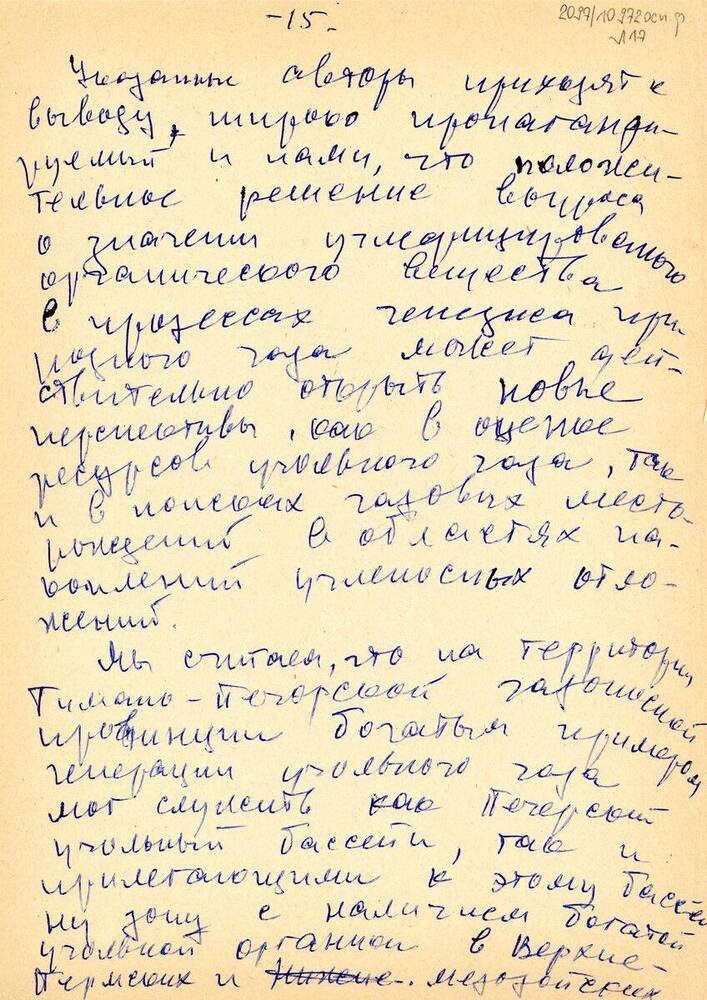 -15.
2097/10972 осн. ф
л17
Указанные авторы приходят к
выводу, широко пропаганди-
руемый и нами, что положи-
тельное решение вопроса
о значении углефицированного
органического вещества
в процессах генезиса при-
родного газа может дей-
ствительно открыть новые
перспективы, как в оценке
ресурсов угольного газа, так
и в поисках газовых место-
рождений в областях на-
коплений угленосных отло-
жений.
Мы считаем, что на территории
Тимано-Печорской газоносной
провинции богатым примером
генерации угольного газа
мог служить как Печорский
угольный бассейн, так и
прилегающими к этому бассей
ну зону с наличием богатой
угольной органикой в Верхне-
Пермских и Нижне-. мезозойских